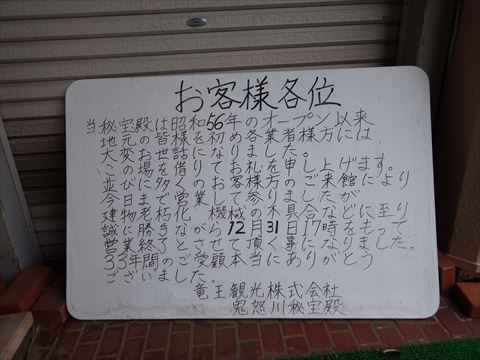 お客様各位
当秘宝殿は昭和56年のオープン以来
地元の皆様を初め各業者様方には
大変お世話になりました。
この場を借りてお礼を申し上げます。
並びに多くのお客様方のご来館により
今日まで営業して参りましたが
建物老朽化 機械の不具合などに至り
誠に勝手ながら12月31日17時をもって
営業終了とさせて頂く事になりました。
33年間のご愛顧本当にありがとう
ございました。
竜王観光株式会社
鬼怒川秘宝殿